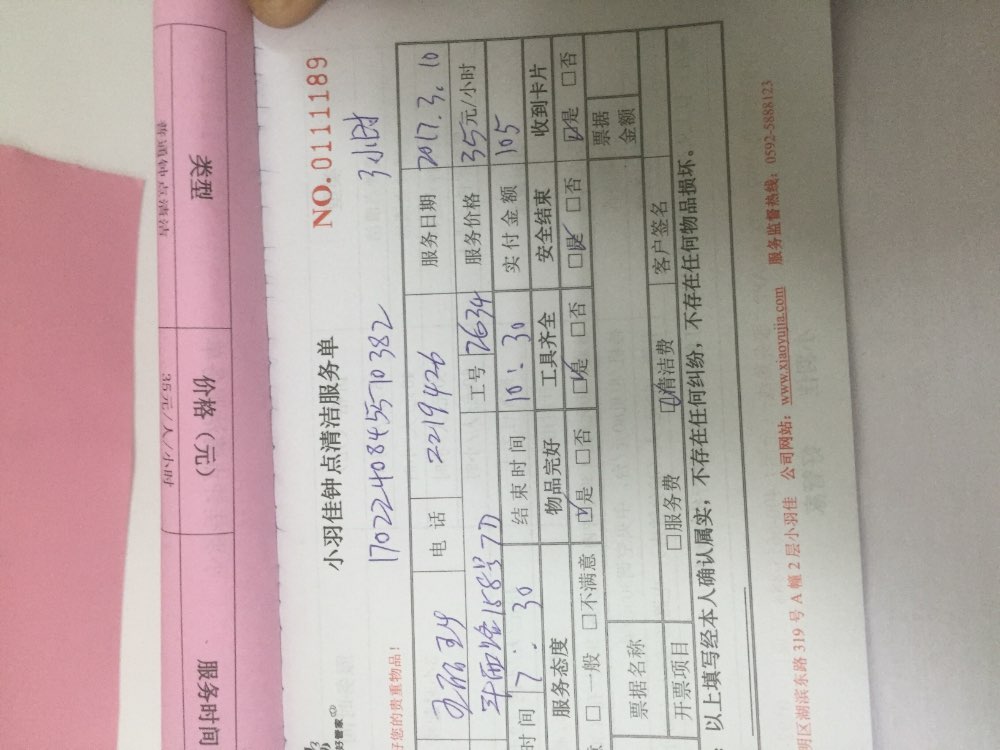 类型
价格（元）
服务时间
普通钟点清洁
35元/人/小时
NO.0111189
小羽佳钟点清洁服务单
好管家
1702240845570382 3小时
好您的贵重物品！
电话 2219426 服务日期 2017.3.10
188号7D 工号 2634 服务价格 35元/小时
时间 7:30 结束时间 10:30 实付金额 105
服务态度 物品完好 工具齐全 安全结束 收到卡片
□一般 □不满意 □是 □否 □是 □否 □是 □否 □是 □否
票据名称 票据金额
开票项目 □服务费 □清洁费 客户签名
以上填写经本人确认属实，不存在任何纠纷，不存在任何物品损坏。
明区湖滨东路 319 号 A 幢 2 层小羽佳 公司网站：www.xiaoyujia.com 服务监督热线：0592-5888123